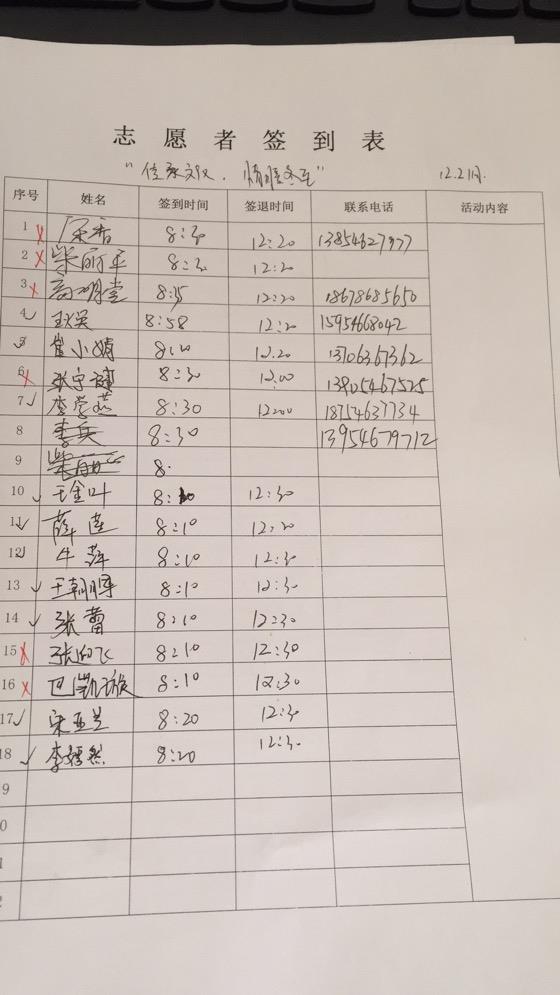 志愿者签到表
"传承文化．情暖冬至" 12.21日.
序号 姓名 签到时间 签退时间 联系电话 活动内容
1 × 8:30 12:20 13854627977
2 × 柴丽平 8:30 12:20
3 × 高明堂 8:35 12:20 18678685650
4 ✓ 8:58 12:20 15954668042
5 ✓ 崔小娟 8:00 12.20 13106367362
6 × 张宇建 8:30 12:00 13905467525
7 ✓ 李学燕 8:30 12:00 18754637734
8 李兵 8:30 13954679712
9 8:
10 ✓ 王金叶 8:10 12:30
11 ✓ 薛莲 8:10 12:30
12 ✓ 牛萍 8:10 12:30
13 ✓ 王朝晖 8:10 12:30
14 ✓ 张蕾 8:10 12:30
15 × 8:10 12:30
16 × 巴凯璇 8:10 12:30
17 ✓ 宋亚兰 8:20 12:30
18 ✓ 8:20 12:30
9
0
1
2